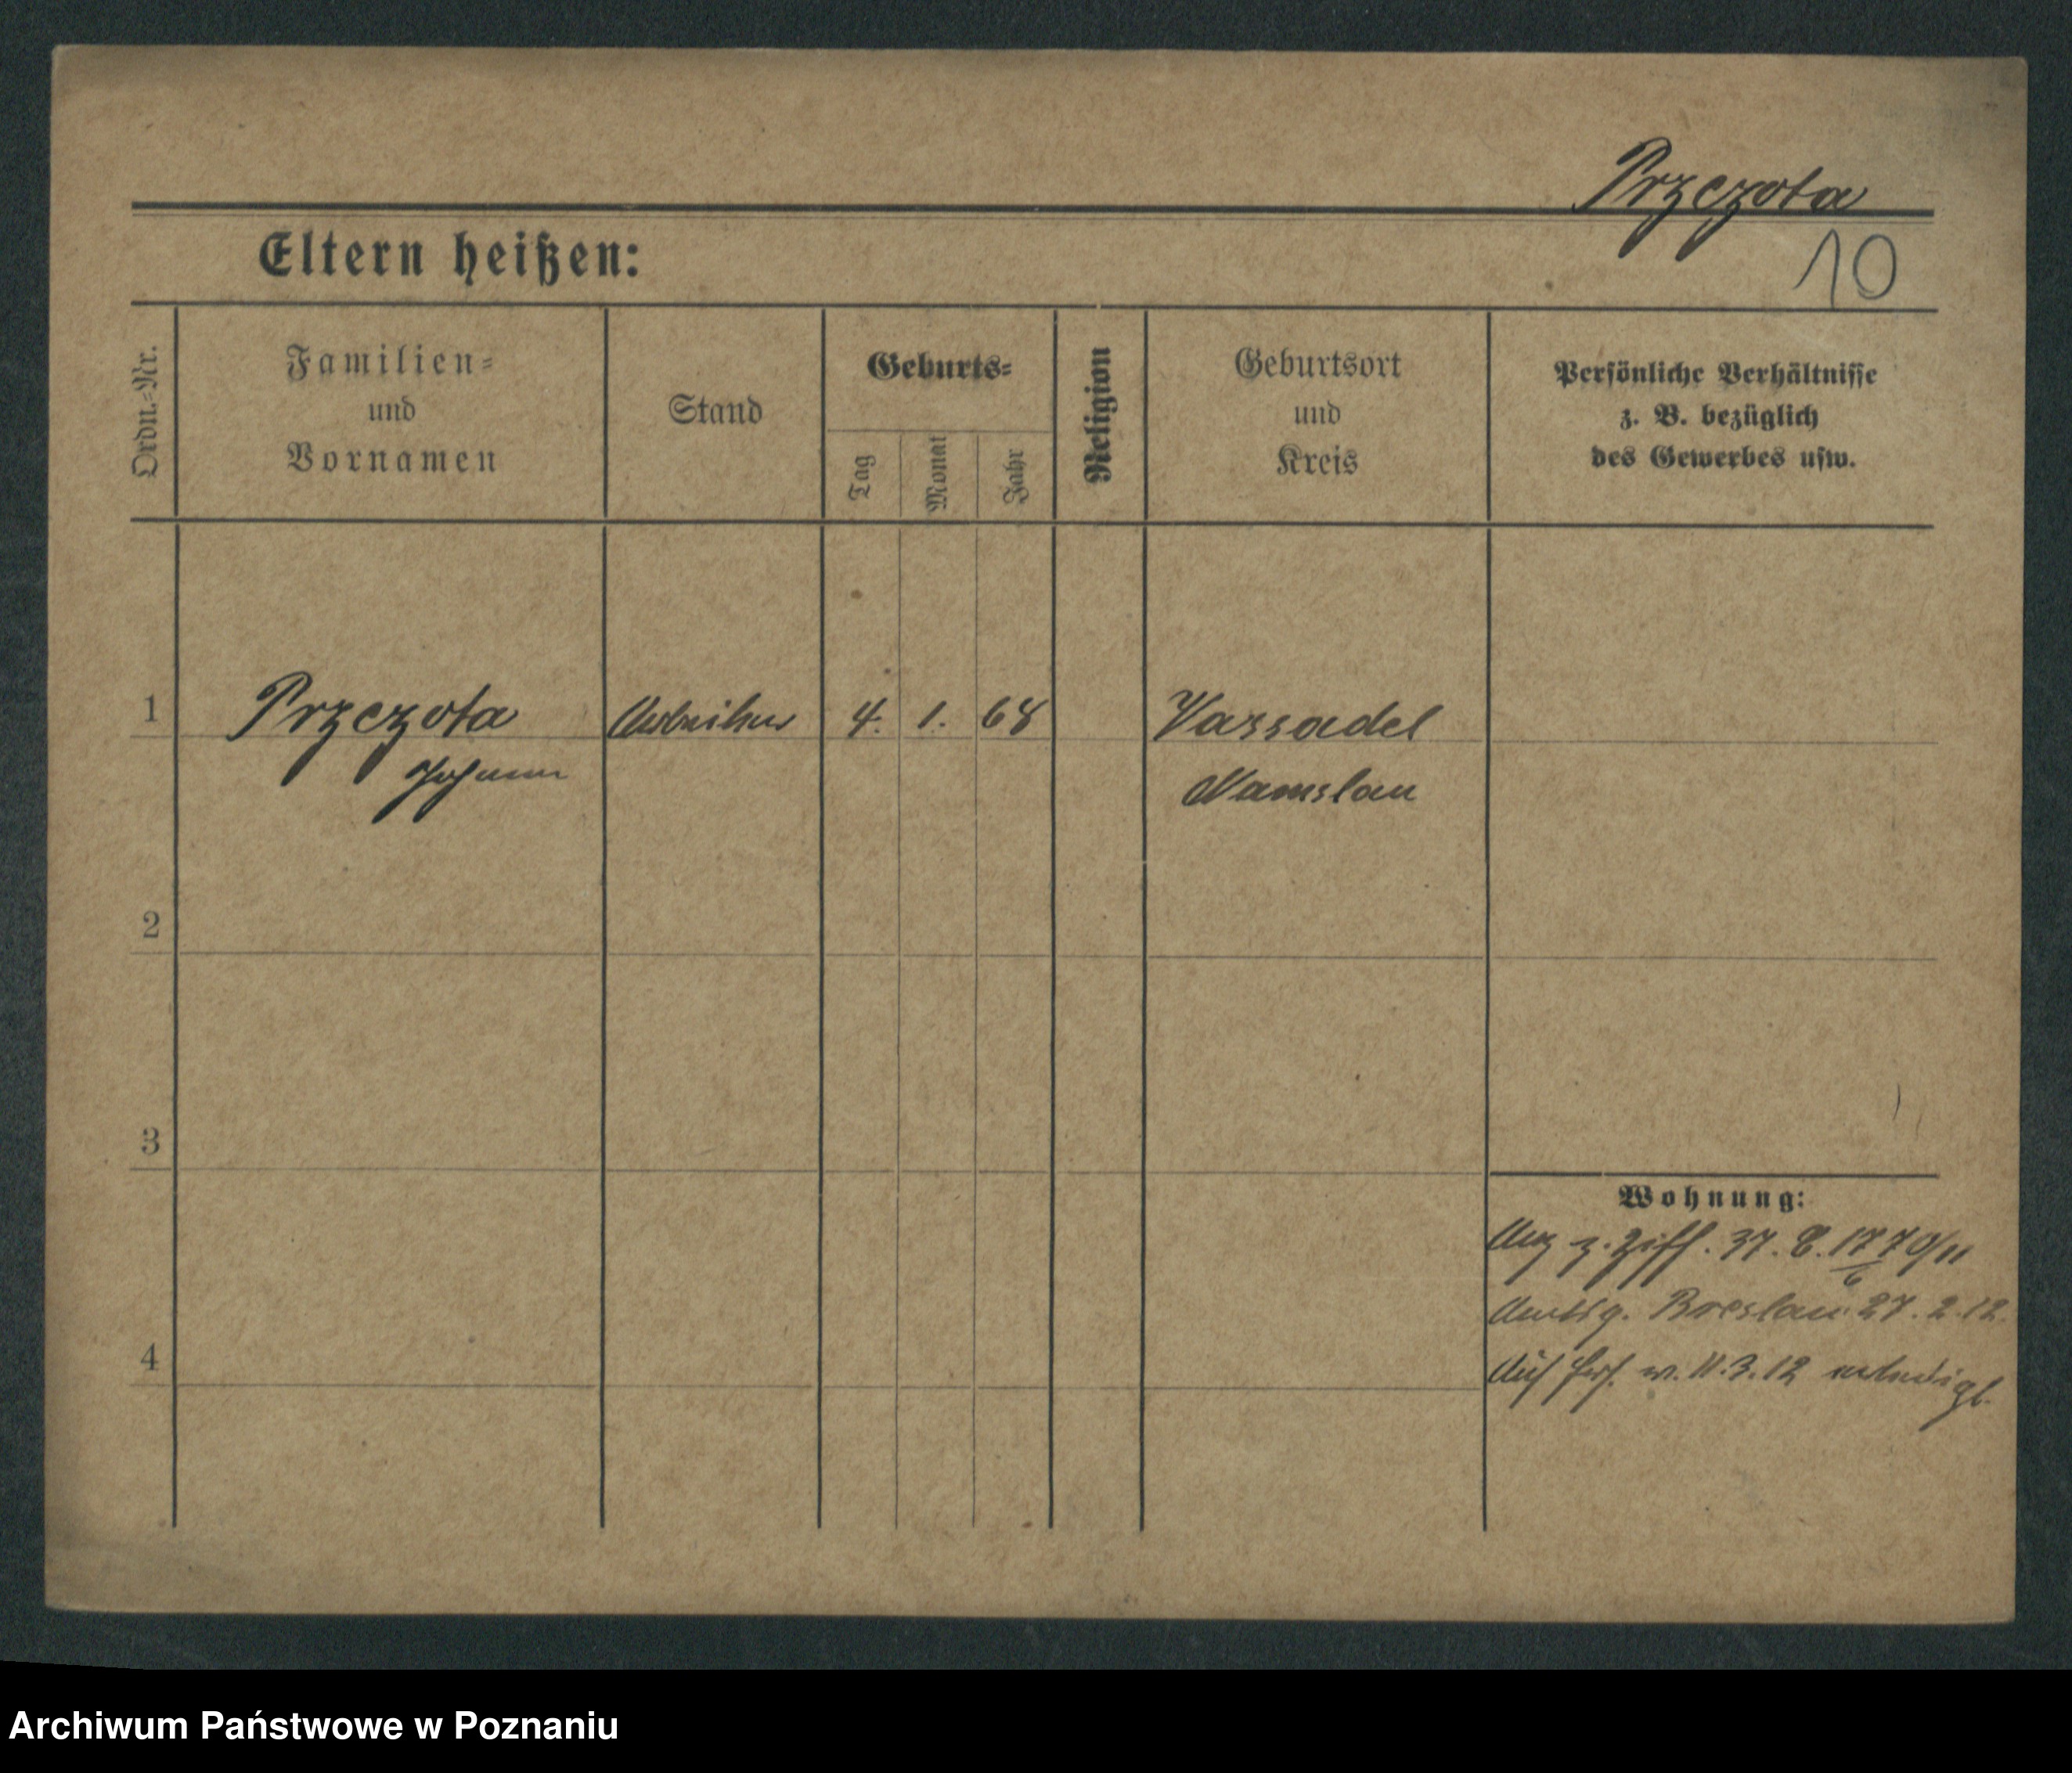 Przezota
10
Eltern heißen:
Ordn.=Nr.
Familien=
und
Vornamen
Stand
Geburts=
Tag
Monat
Jahr
Religion
Geburtsort
und
Kreis
Persönliche Verhältnisse
z. B. bezüglich
des Gewerbes usw.
1 Przezota Arbeiter 4. 1. 68 Vassadel
Johann Namslau
2
3
Wohnung:
z. Ziff. 37.
Breslau 27.2.12.
4
Auf 11.3.12
Archiwum Państwowe w Poznaniu